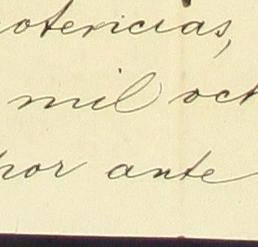 otericias,
mil oct
por ante